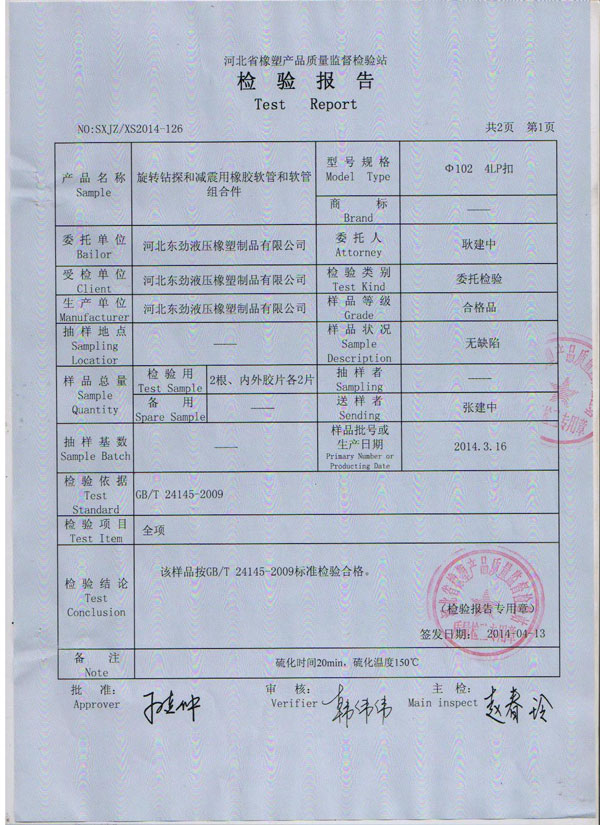 河北省橡塑产品质量监督检验站
检 验 报 告
Test Report
NO:SXJZ/XS2014-126 共2页 第1页
产 品 名 称
Sample
旋转钻探和减震用橡胶软管和软管
组合件
型 号 规 格
Model Type
Φ102 4LP扣
商 标
Brand
——
委 托 单 位
Bailor
河北东劲液压橡塑制品有限公司
委 托 人
Attorney
耿建中
受 检 单 位
Client
河北东劲液压橡塑制品有限公司
检 验 类 别
Test Kind
委托检验
生 产 单 位
Manufacturer
河北东劲液压橡塑制品有限公司
样 品 等 级
Grade
合格品
抽 样 地 点
Sampling
Locatior
——
样 品 状 况
Sample
Description
无缺陷
样 品 总 量
Sample
Quantity
检 验 用
Test Sample
2根、内外胶片各2片
抽 样 者
Sampling
——
备 用
Spare Sample
——
送 样 者
Sending
张建中
抽 样 基 数
Sample Batch
——
样品批号或
生产日期
Primary Number or
Producting Date
2014.3.16
检 验 依 据
Test
Standard
GB/T 24145-2009
检 验 项 目
Test Item
全项
检 验 结 论
Test
Conclusion
该样品按GB/T 24145-2009标准检验合格。
(检验报告专用章)
签发日期: 2014-04-13
备 注
Note
硫化时间20min，硫化温度150℃
批 准:
Approver
审 核:
Verifier
韩伟伟
主 检:
Main inspect
赵春玲